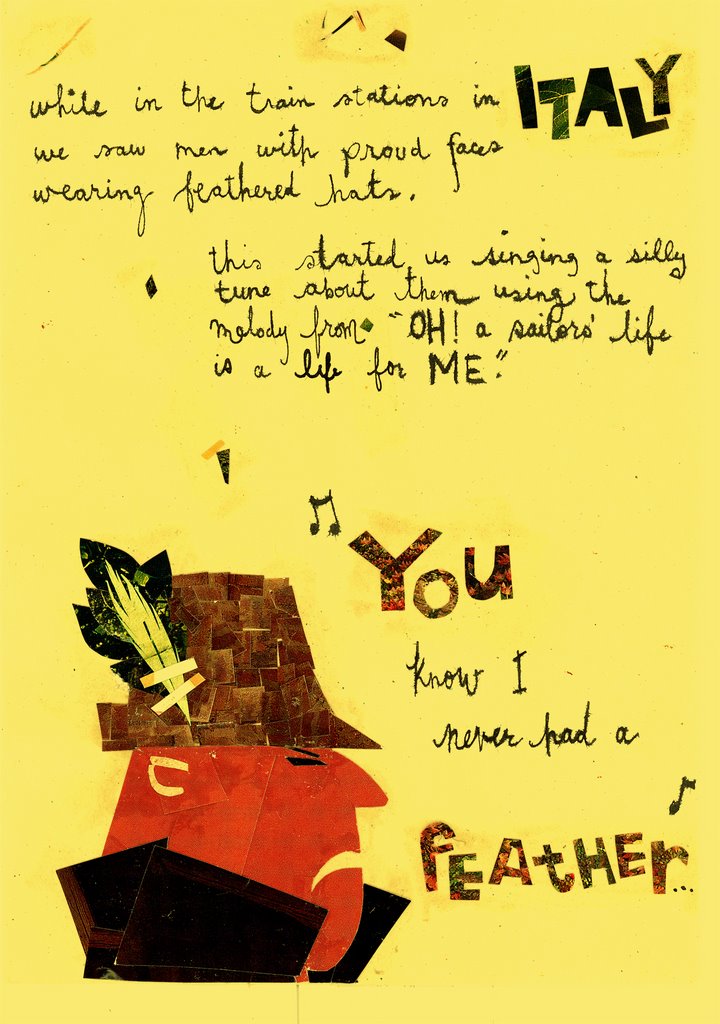 while in the train stations in ITALY
we saw men with proud faces
wearing feathered hats.
this started us singing a silly
tune about them using the
melody from "OH! a sailors' life
is a life for ME."
YOU
know I
never had a
fEAtHEr...